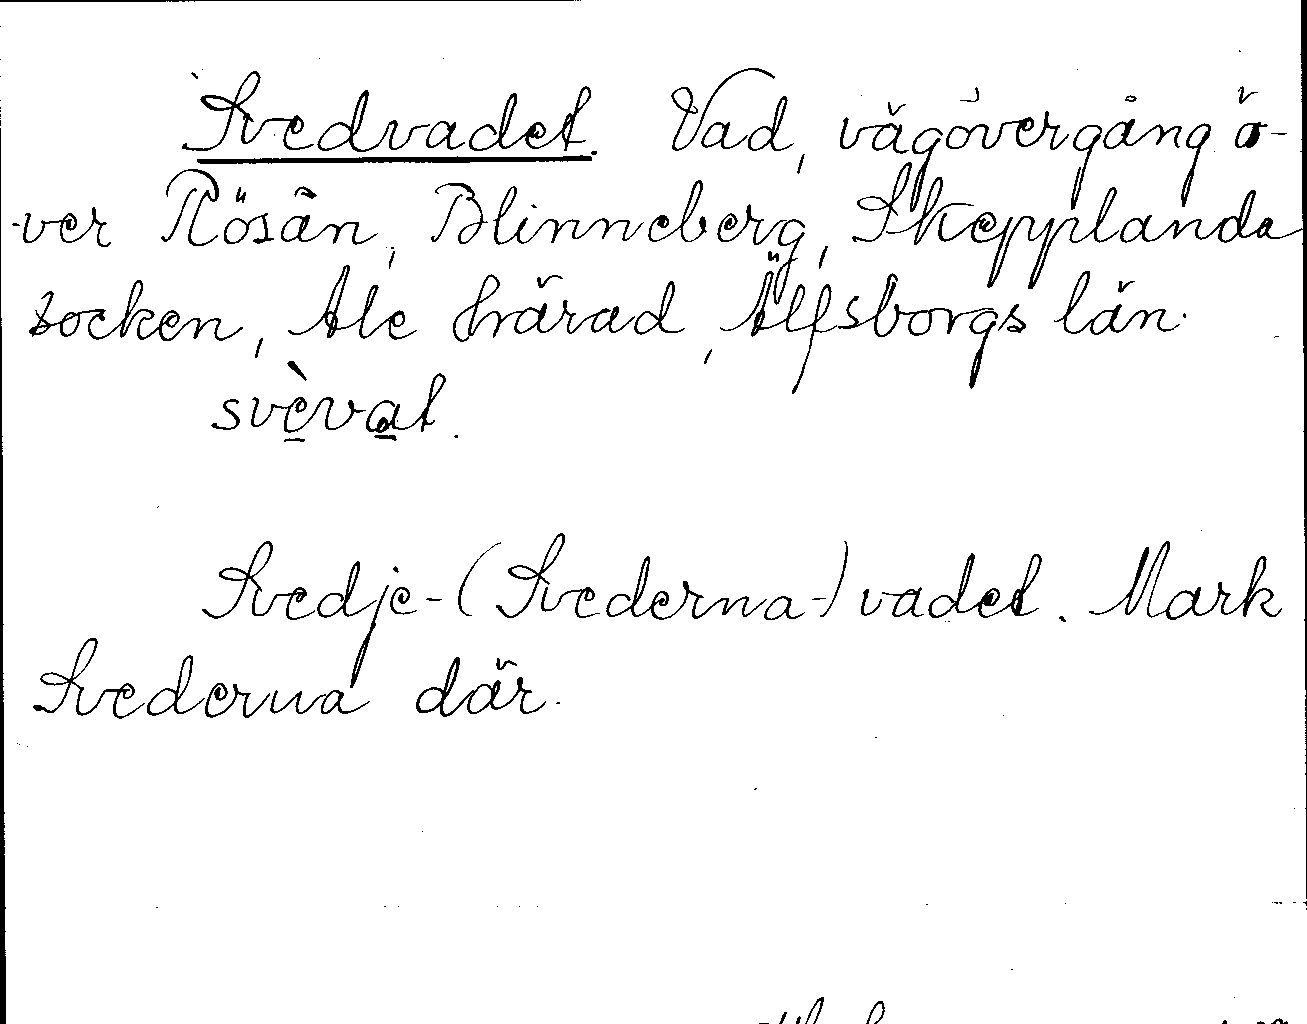 Svedvadet. Vad, vägövergång ö-
ver Rösån, Blinneberg, Skepplanda
socken, Ale härad, Älfsborgs län.
svèvat.
Svedje-(Svederna-)vadet. Mark
Svederna där.